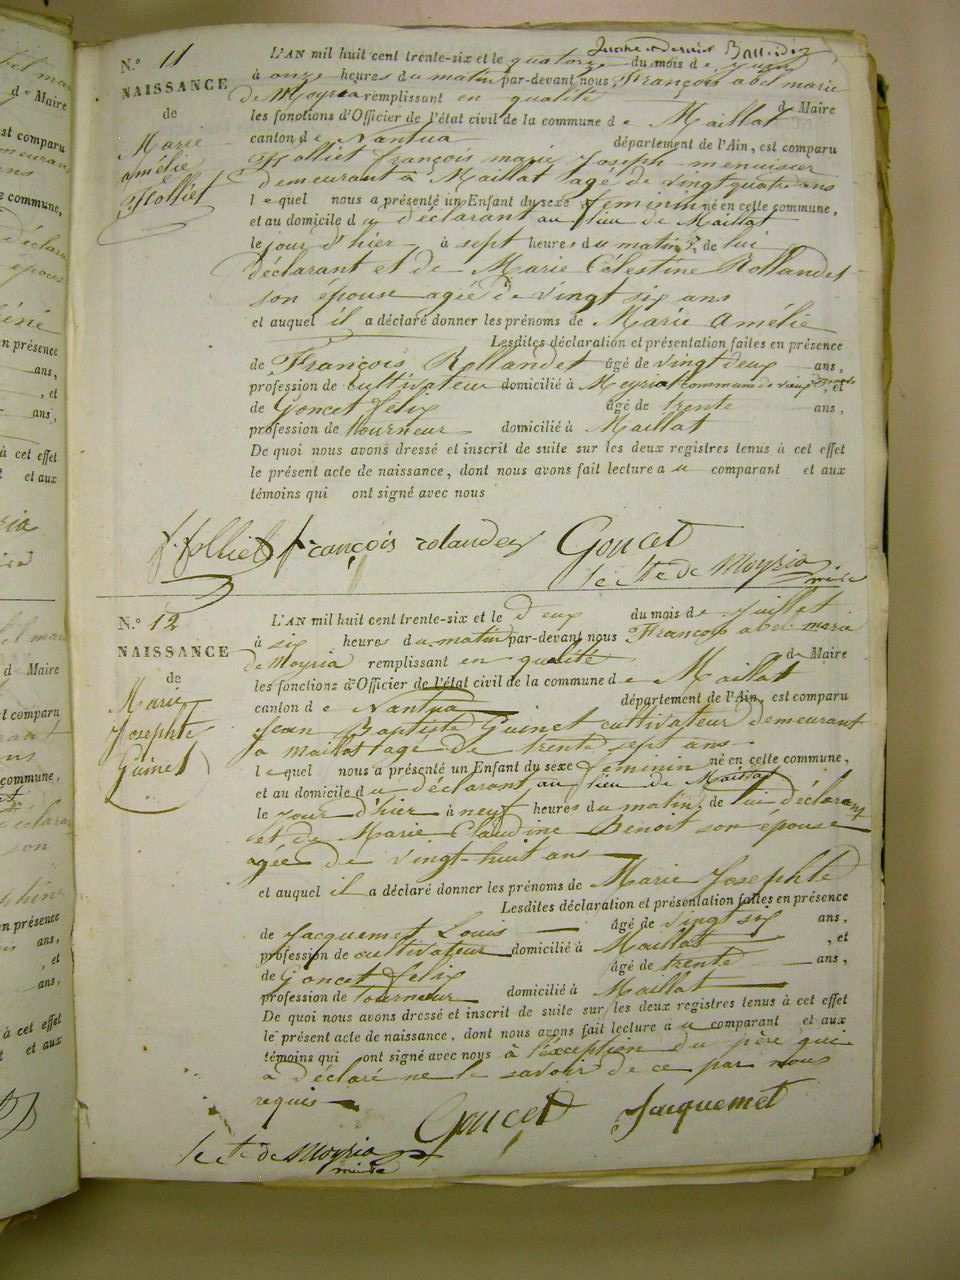 N.° 11
NAISSANCE
de
Marie
amélie
Holliet
L'AN mil huit cent trente-six et le quatorze du mois de
à onze heures du matin par-devant nous François abel marie
de Moyria remplissant en qualité de Maire
les fonctions d'Officier de l'état civil de la commune de Maillat
canton de Nantua département de l'Ain, est comparu
Holliet françois marie Joseph menuisier
demeurant à Maillat agé de vingt quatre ans
lequel nous a présenté un Enfant du sexe féminin né en cette commune,
et au domicile du déclarant au lieu de Maillat
le jour d'hier à sept heures du matin, de lui
déclarant et de Marie Célestine Rollandet
son épouse agée de vingt six ans
et auquel il a déclaré donner les prénoms de Marie Amélie
Lesdites déclaration et présentation faites en présence
de François Rollandet âgé de vingt deux ans,
profession de cultivateur domicilié à Meyriat commune de vieux , et
de Goncet félix âgé de trente ans,
profession de tourneur domicilié à Maillat
De quoi nous avons dressé et inscrit de suite sur les deux registres tenus à cet effet
le présent acte de naissance, dont nous avons fait lecture au comparant et aux
témoins qui ont signé avec nous
f. holliet françois rolandez Goncet
le cte de Moyria
maire
N.° 12
NAISSANCE
de
Marie
Josephte
Guinet
L'AN mil huit cent trente-six et le deux du mois de Juillet
à six heures du matin par-devant nous François abel marie
de Moyria remplissant en qualité de Maire
les fonctions d'Officier de l'état civil de la commune de Maillat
canton de Nantua département de l'Ain, est comparu
Jean Baptiste Guinet cultivateur demeurant
à maillat agé de trente sept ans
lequel nous a présenté un Enfant du sexe féminin né en cette commune,
et au domicile du déclarant au lieu de Maillat
le jour d'hier à neuf heures du matin, de lui déclarant
et de Marie Claudine Benoit son épouse
agée de vingt-huit ans
et auquel il a déclaré donner les prénoms de Marie Josephte
Lesdites déclaration et présentation faites en présence
de Jacquemet Louis âgé de vingt six ans,
profession de cultivateur domicilié à Maillat , et
de Goncet félix âgé de trente ans,
profession de tourneur domicilié à Maillat
De quoi nous avons dressé et inscrit de suite sur les deux registres tenus à cet effet
le présent acte de naissance, dont nous avons fait lecture au comparant et aux
témoins qui ont signé avec nous à l'éxception du père qui
a déclaré ne le savoir de ce par nous
requis
Goncet Jacquemet
le cte de Moyria
maire